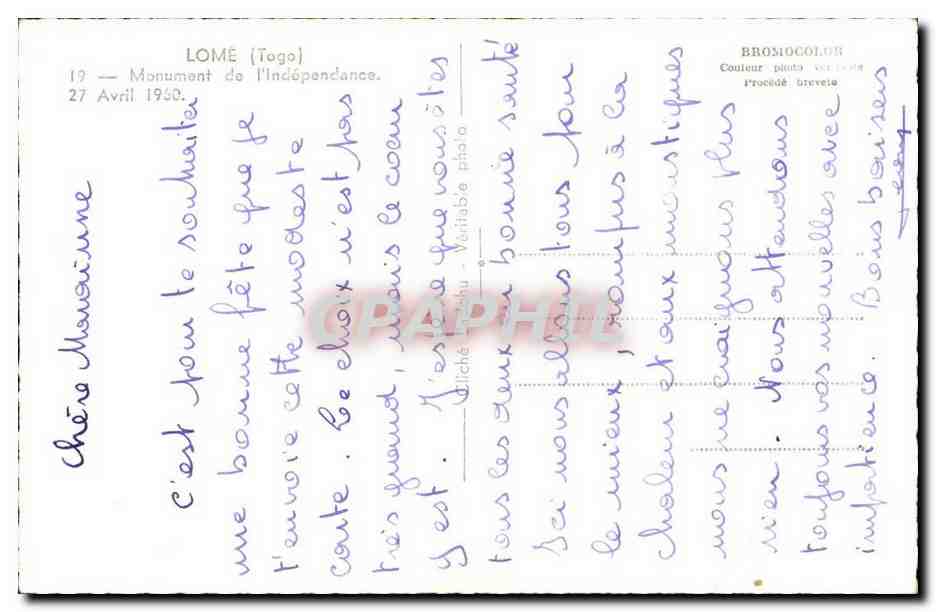 LOMÉ (Togo)
19 — Monument de l'Indépendance.
27 Avril 1960.
BROMOCOLOR
Couleur photo véritable
Procédé breveté
Cliché - Véritable photo
CPARAPHIL
Chère Marainne
c'est pour te souhaiter
une bonne fête que je
t'envoie cette modeste
carte. Le choix n'est pas
très grand, mais le coeur
y est. J'espère que vous êtes
tous les deux en bonne santé
Ici nous allons tous pour
le mieux, rompus à la
chaleur et aux moustiques
nous ne craignons plus
rien. Nous attendons
toujours vos nouvelles avec
impatience. Bons baisers